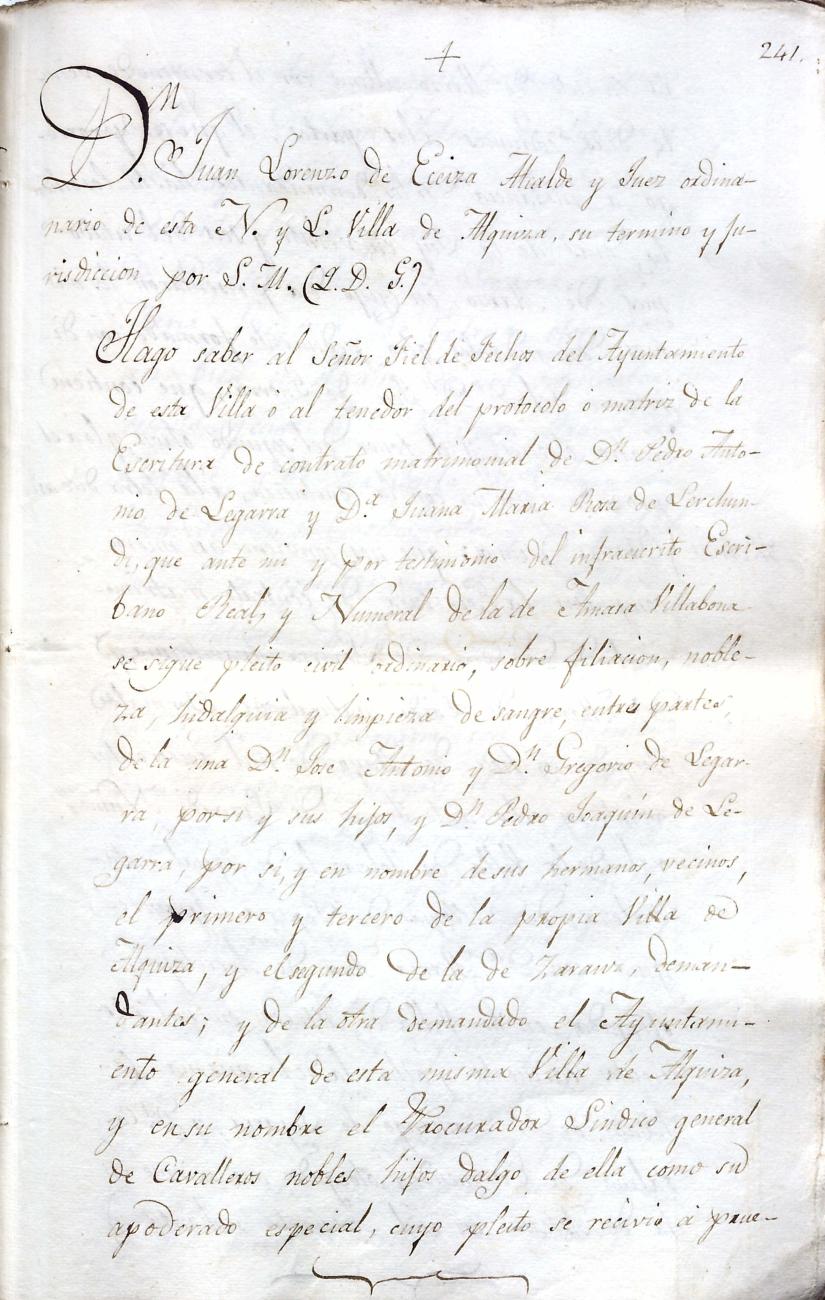 241.
D.n Juan Lorenzo de Eceiza Alcalde y Juez ordina-
nario de esta N. y L. Villa de Alquiza, su termino y ju-
risdiccion por S. M. (Q. D. G.)
Hago saber al Señor Fiel de Fechos del Ayuntamiento
de esta Villa ò al tenedor del protocolo ò matriz de la
Escritura de contrato matrimonial de D.n Pedro Anto-
nio de Legarra y D.a Juana Maria Rosa de Lerchun-
di, que ante mi y por testimonio del infraescrito Escri-
bano Real, y Numeral de la de Amasa Villabona
se sigue pleito civil ordinario, sobre filiacion, noble-
za, hidalguia y limpieza de sangre, entre partes,
de la una D.n Jose Antonio y D.n Gregorio de Legar-
ra, por si y sus hijos, y D.n Pedro Joaquin de Le-
garra, por si, y en nombre de sus hermanos, vecinos,
el primero y tercero de la propia Villa de
Alquiza, y el segundo de la de Zarauz, deman-
dantes; y de la otra demandado el Ayuntami-
ento general de esta misma Villa de Alquiza,
y en su nombre el Procurador Sindico general
de Cavalleros nobles hijos dalgo de ella como su
apoderado especial, cuyo pleito se recivio à prue-